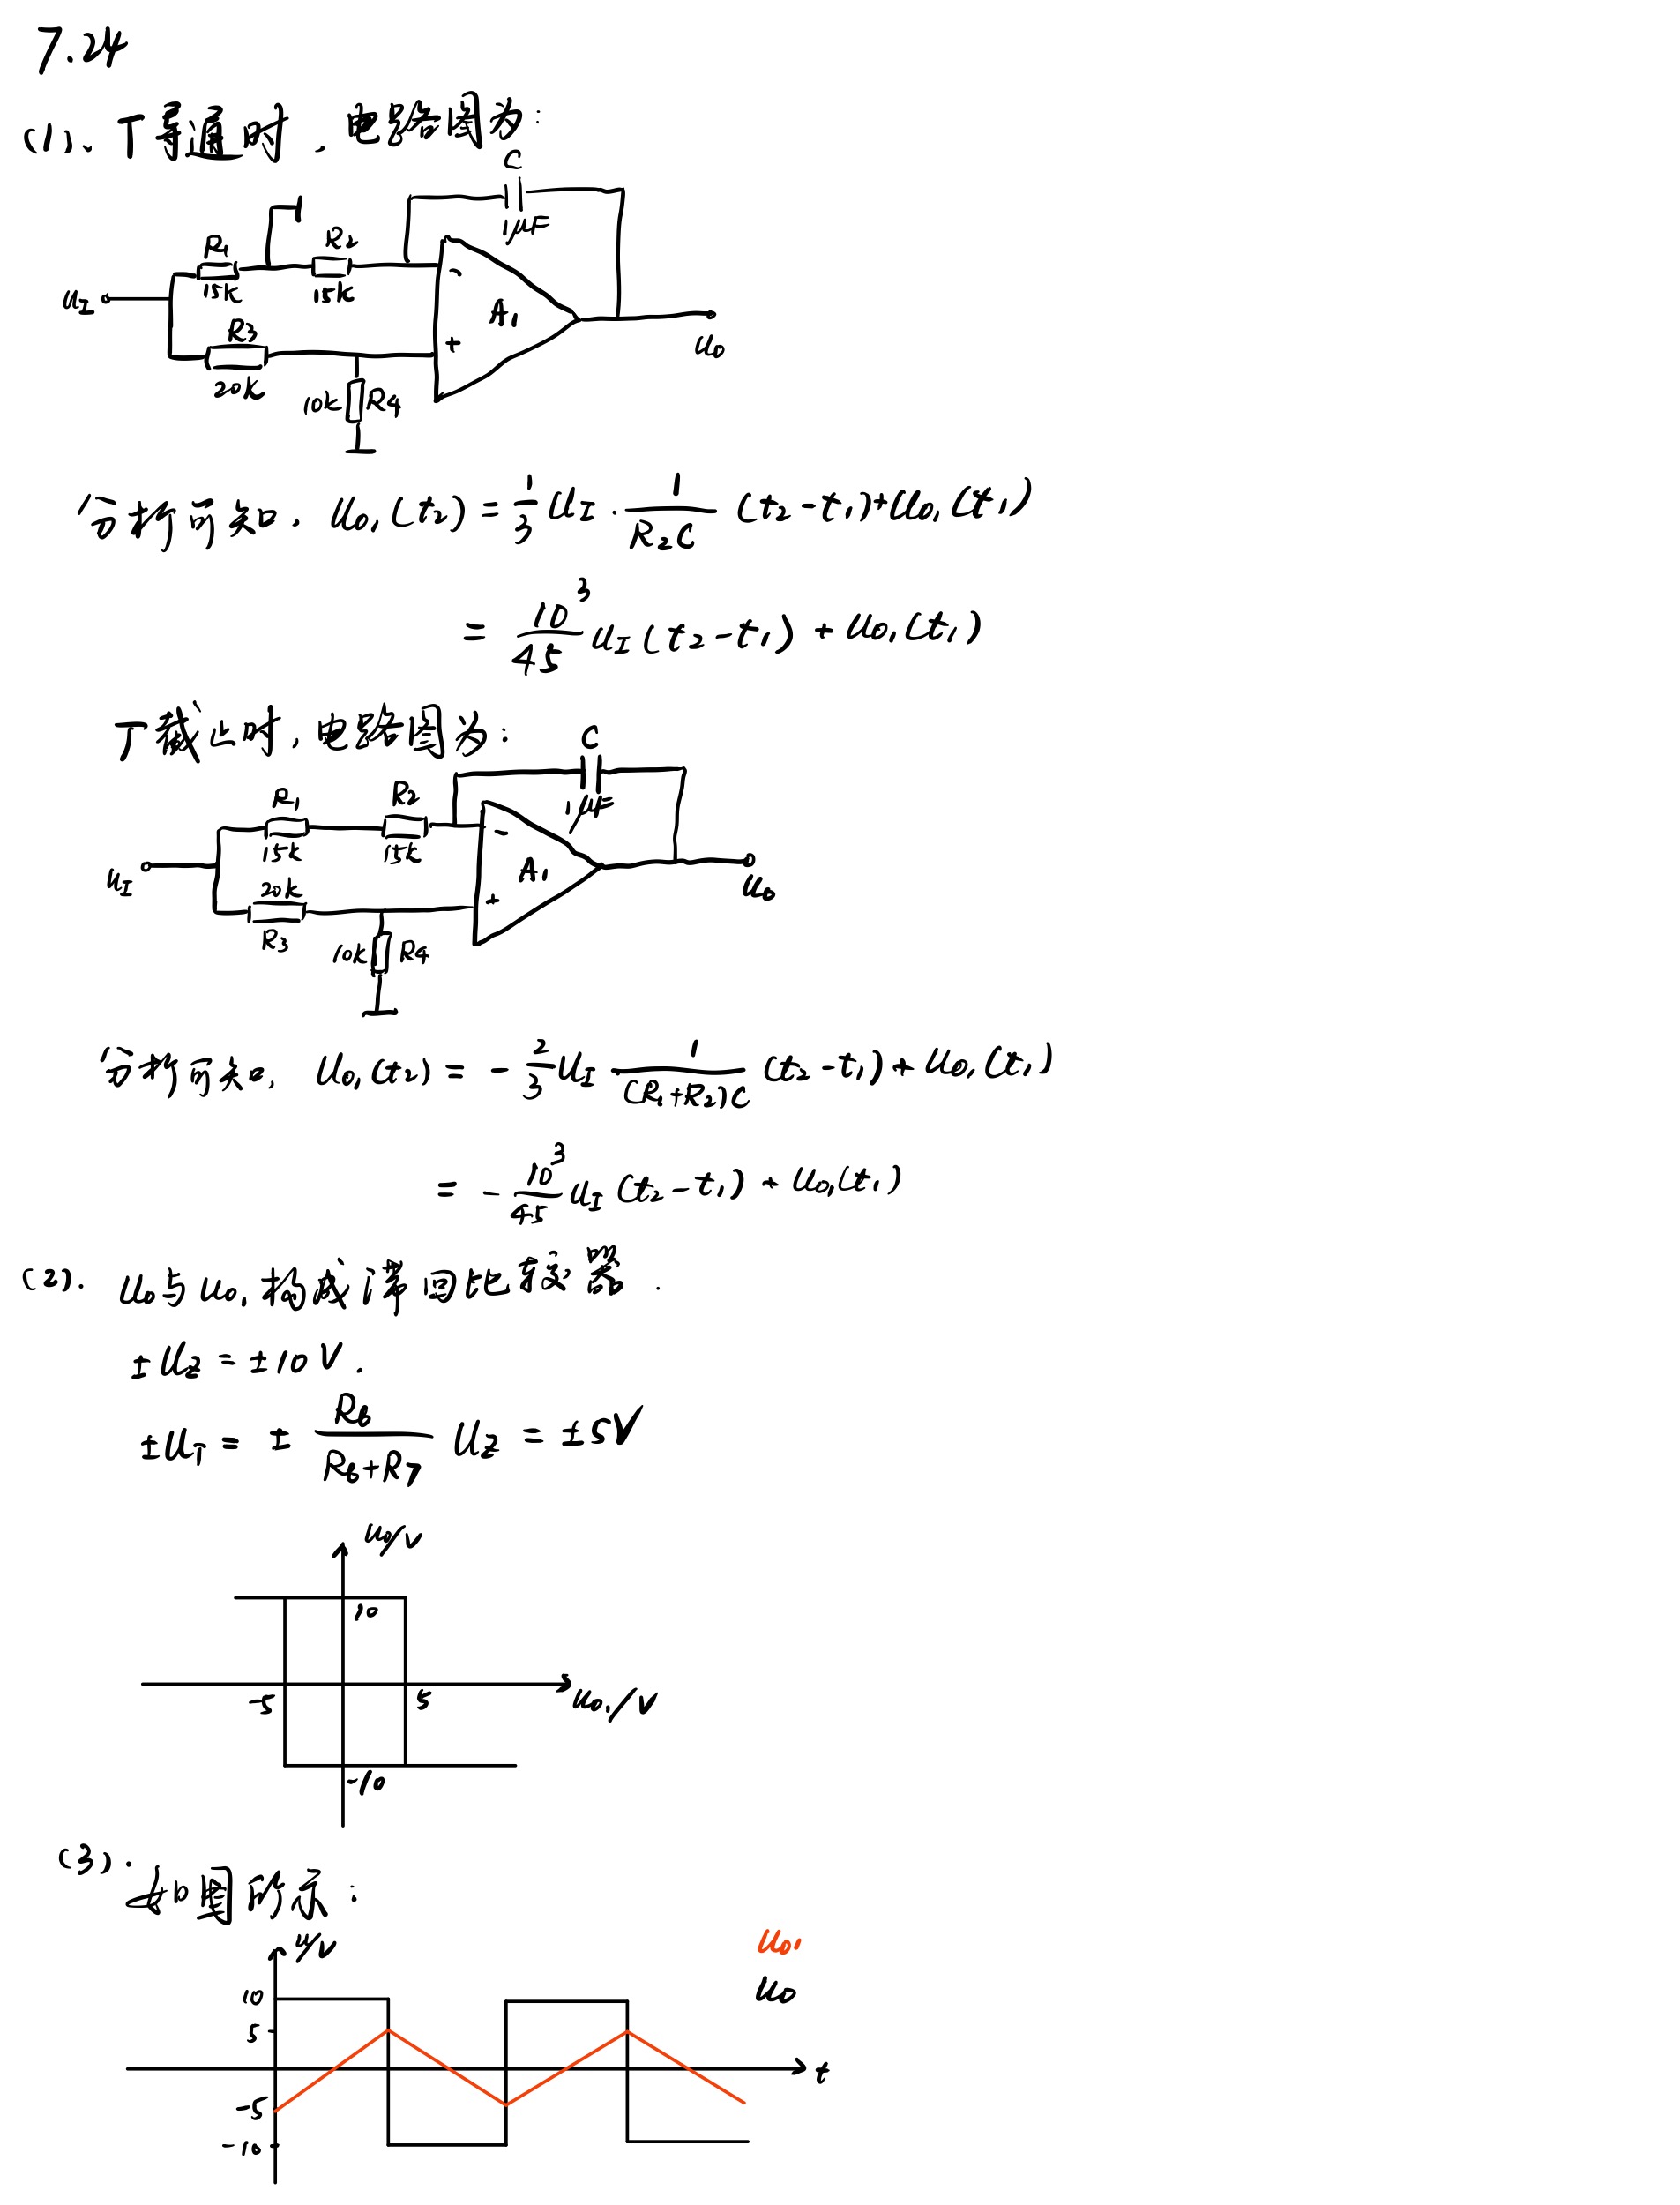 7.24
(1)、T导通时,电路图为:
C
1μF
R1
15K
R2
15K
uI
R3
20K
10K R4
-
+
A1
uo
分析可知, uo1(t2) = 1/3 uI · 1/(R2C) (t2-t1)+uo1(t1)
= 10^3/45 uI(t2-t1) + uo1(t1)
T截止时,电路图为:
C
1μF
R1
15K
R2
15K
uI
20K
R3
10K R4
-
+
A1
uo
分析可知, uo1(t2) = - 2/3 uI 1/((R1+R2)C) (t2-t1)+uo1(t1)
= - 10^3/45 uI (t2-t1) + uo1(t1)
(2). uo与uo1构成滞回比较器.
±uZ = ±10V.
±uT = ± R6/(R6+R7) uZ = ±5V
uo/V
10
-5
5
uo1/V
-10
(3).
如图所示:
u/V
uo1
uo
10
5
t
-5
-10